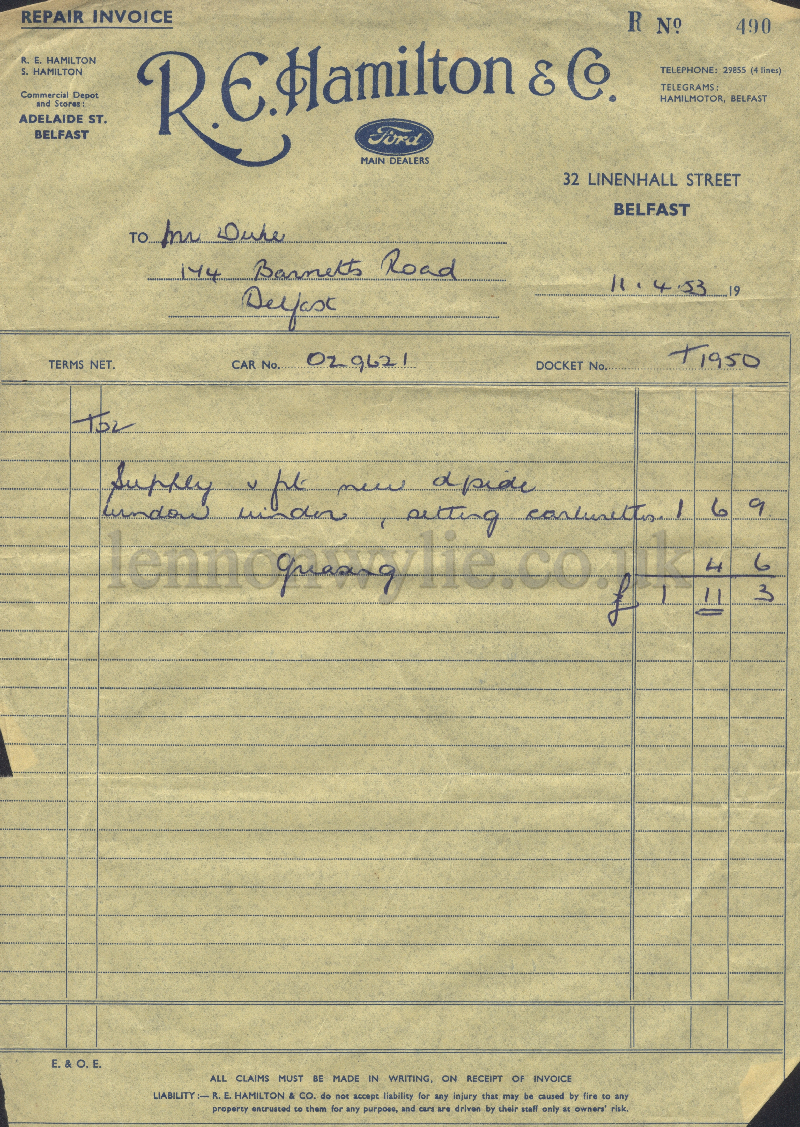 REPAIR INVOICE
R No 490
R. E. HAMILTON
S. HAMILTON
Commercial Depot
and Stores:
ADELAIDE ST.
BELFAST
R.E. Hamilton & Co.
Ford
MAIN DEALERS
TELEPHONE: 29855 (4 lines)
TELEGRAMS:
HAMILMOTOR, BELFAST
32 LINENHALL STREET
BELFAST
TO Mr Duke
174 Barnetts Road
Belfast
11.4.53 19
TERMS NET. CAR No. OZ 9621 DOCKET No. T1950
To:
Supply & fit new d/side
window winder, setting carburettor. 1 6 9
Greasing 4 6
£ 1 11 3
lennonwylie.co.uk
E. & O. E.
ALL CLAIMS MUST BE MADE IN WRITING, ON RECEIPT OF INVOICE
LIABILITY:— R. E. HAMILTON & CO. do not accept liability for any injury that may be caused by fire to any
property entrusted to them for any purpose, and cars are driven by their staff only at owners' risk.